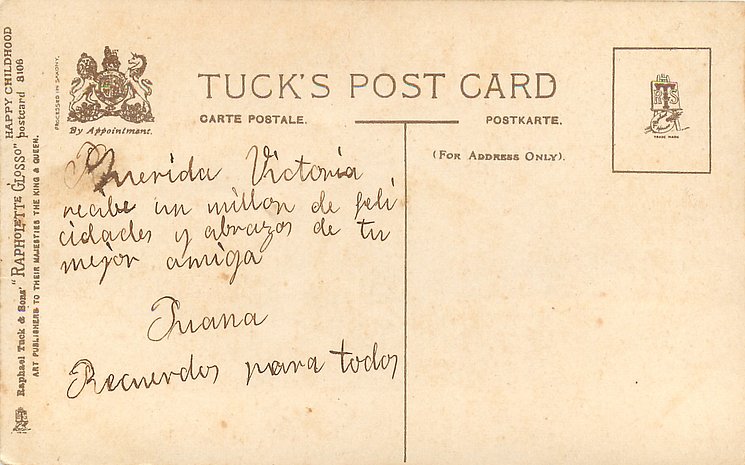 TUCK'S POST CARD
CARTE POSTALE.
POSTKARTE.
By Appointment.
PROCESSED IN SAXONY.
(FOR ADDRESS ONLY).
TRADE MARK
Querida Victoria
recibe un millon de feli
cidades y abrazos de tu
mejor amiga
Juana
Recuerdos para todos
HAPPY CHILDHOOD
Raphael Tuck & Sons' "RAPHOLETTE GLOSSO" postcard 8106
ART PUBLISHERS TO THEIR MAJESTIES THE KING & QUEEN.